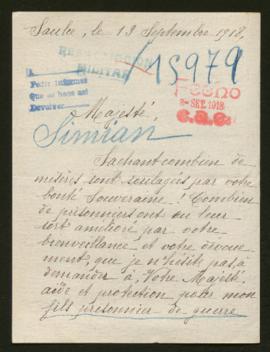 Saulce, le 13 Septembre 1918,
RESTRICCIÓN
MILITAR
15979
Pedir informes
que se hace así
Devolver
SET. 1918
Majesté,
Simian
Sachant combien de
misères sont soulagées par votre
bonté Souveraine ! Combien
de prisonniers ont eu leur
sort amélioré par votre
bienveillance et votre dévoue
ment, que je n'hésite pas à
demander à Votre Majesté
aide et protection pour mon
fils prisonnier de guerre